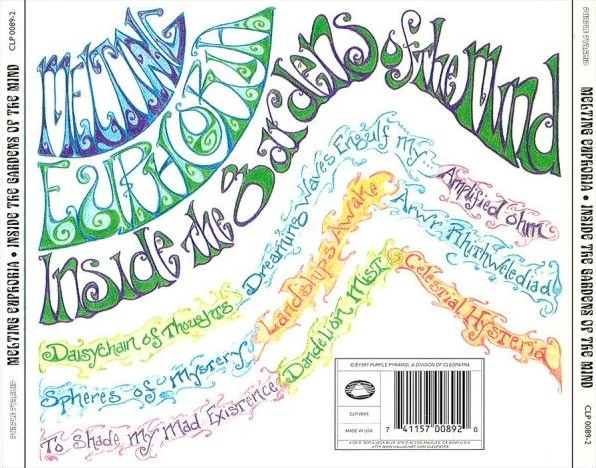 MELTING
EUPHORIA
Inside the Gardens of the Mind
Daisychain of Thoughts
Dreaming Waves Engulf My...
Amplified Ohm
Spheres of Mystery
Landships Awake
Arwr Rhythwelediad
To Shade My Mad Existence
Dandelion Mist
Celestial Hysteria
©℗1997 PURPLE PYRAMID, A DIVISION OF CLEOPATRA
MADE IN USA
7 41157 00892 0
CLP 0089-2
MELTING EUPHORIA • INSIDE THE GARDENS OF THE MIND
PURPLE PYRAMID
PURPLE PYRAMID
MELTING EUPHORIA • INSIDE THE GARDENS OF THE MIND
CLP 0089-2